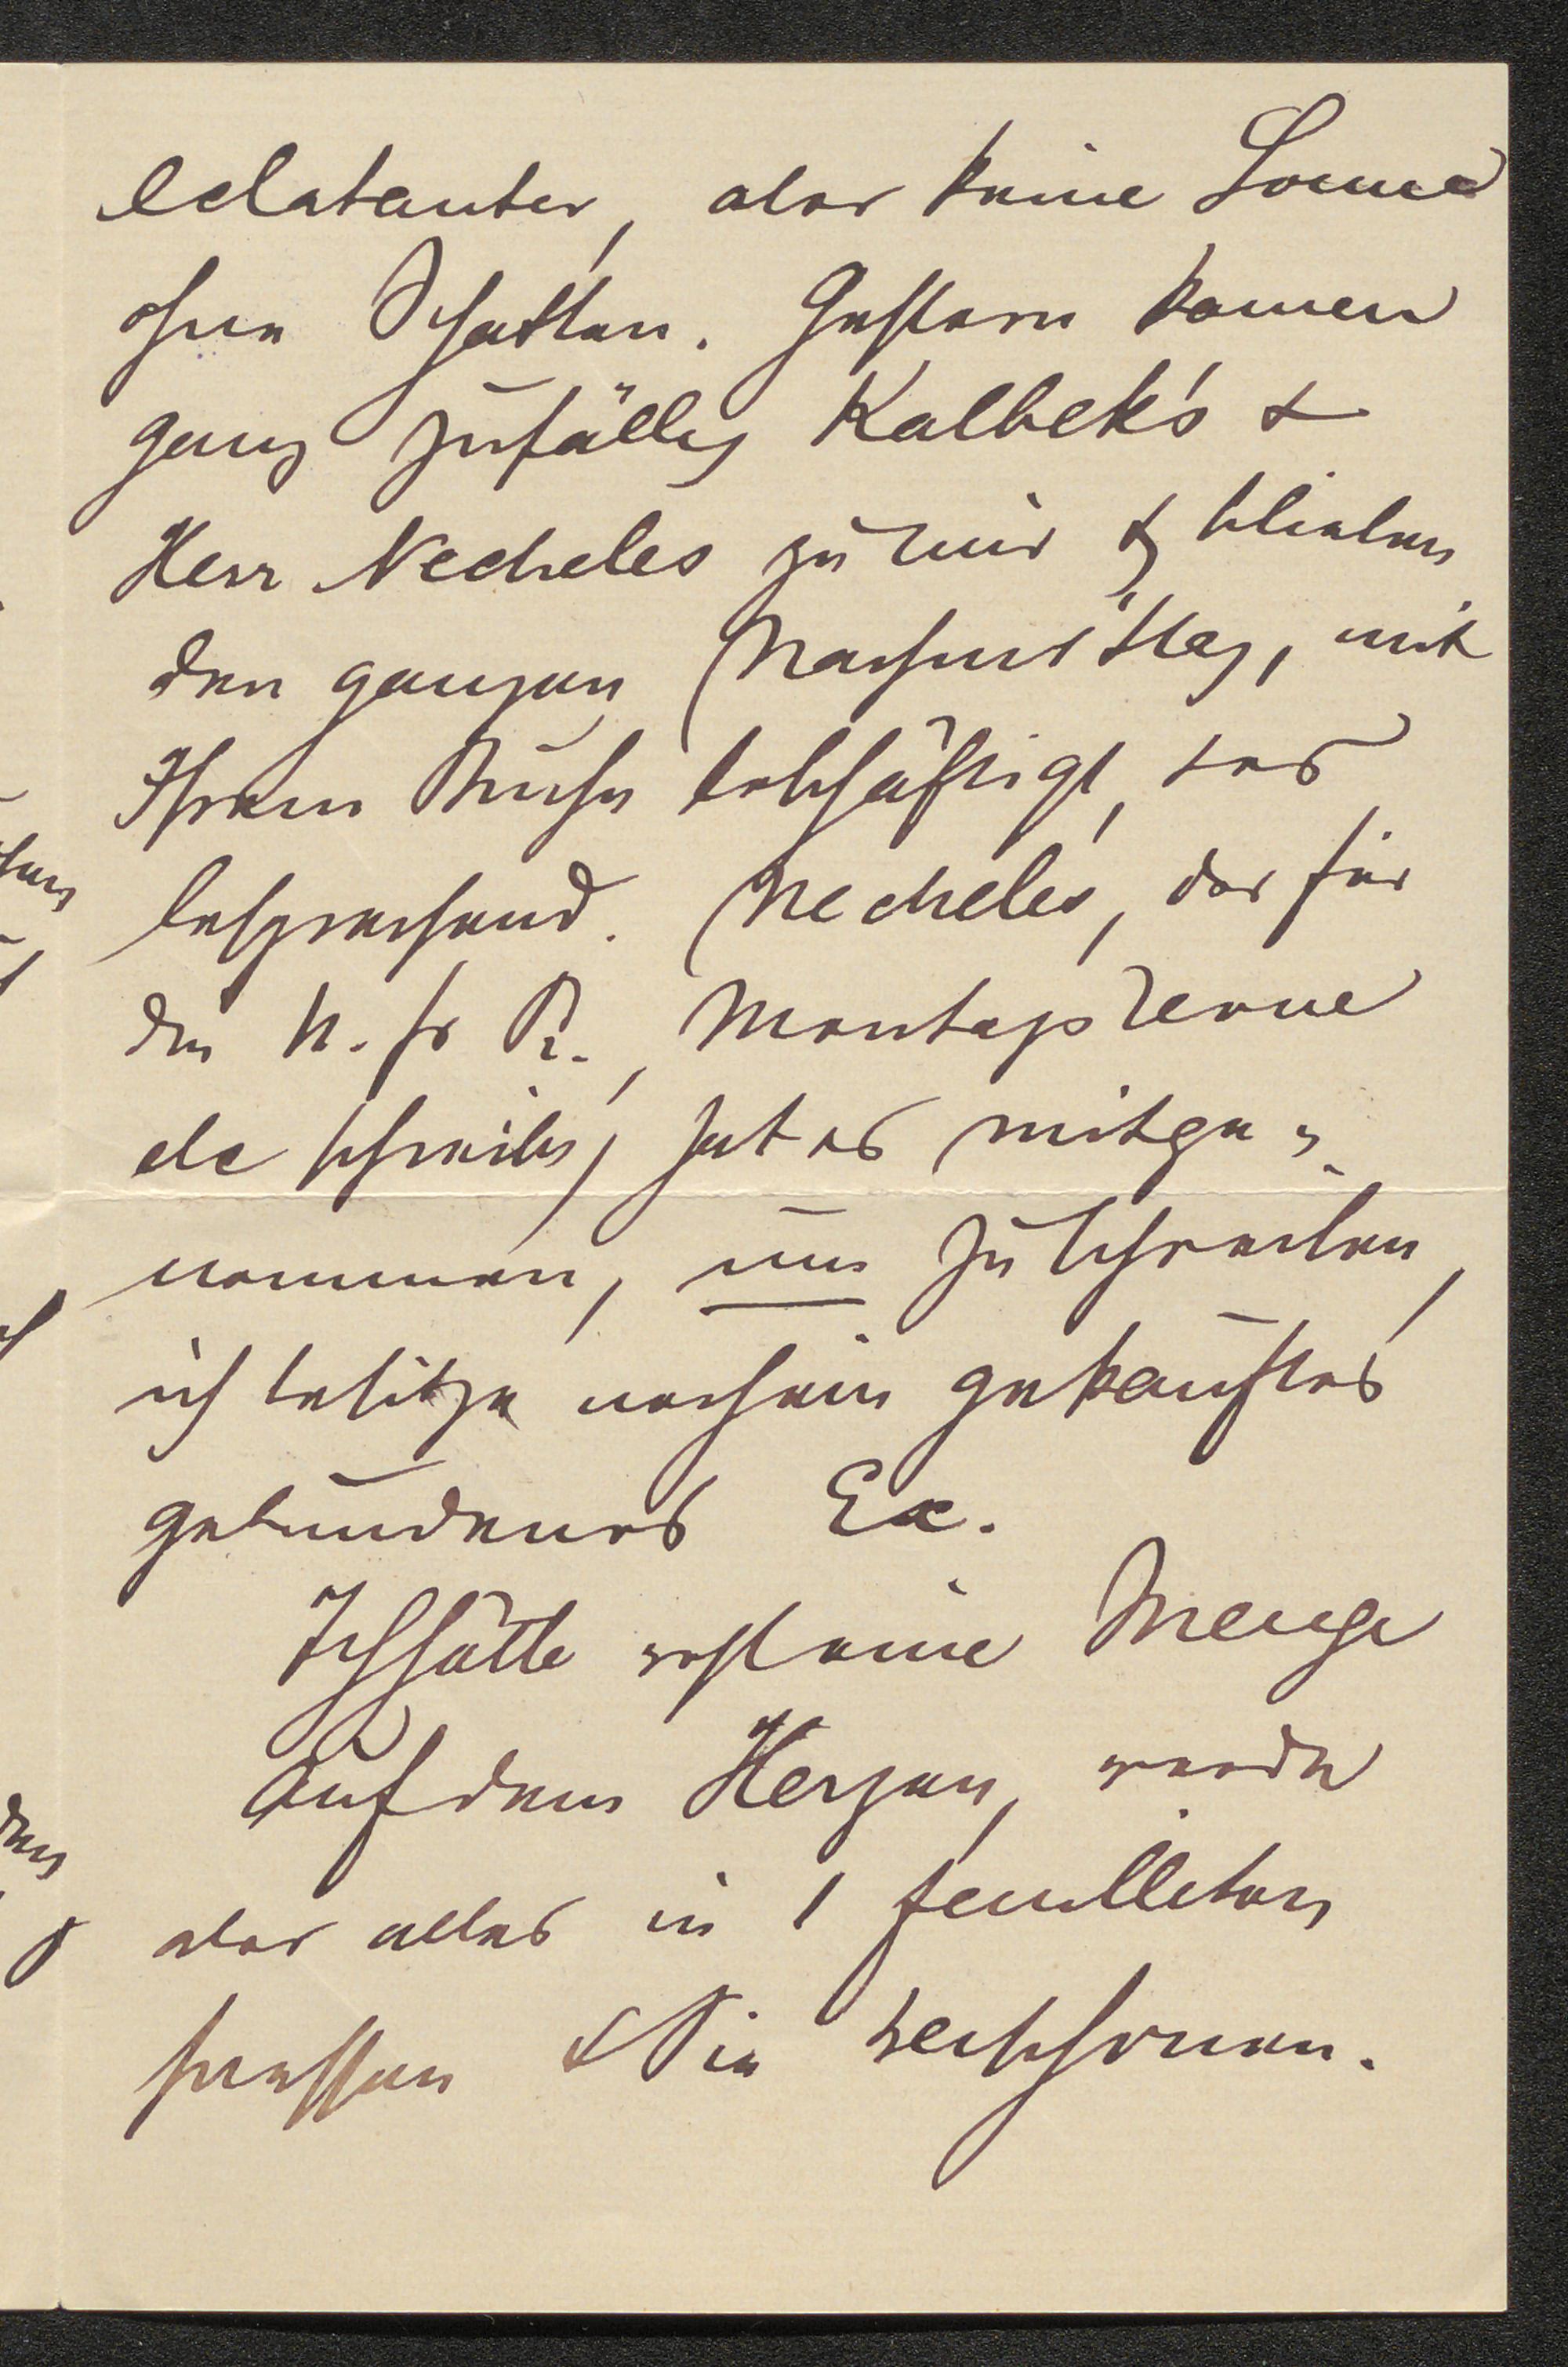 eclatanter, aber keine Sonne
ohne Schatten. Gestern kamen
ganz zufällig Kalbek's &
Herr Necheles zu mir & blieben
den ganzen Nachmittag, mit
Ihrem Buche beschäftigt, es
besprechend. Necheles, der für
die N. fr P., Montagsrevue
etc schreibt, hat es mitge=
nommen, um zu schreiben,
ich besitze noch ein gekauftes
gebundenes Ex.
Ich hätte wohl eine Menge
auf dem Herzen, werde
aber alles in 1 feuilleton
pressen & Sie verschonen.